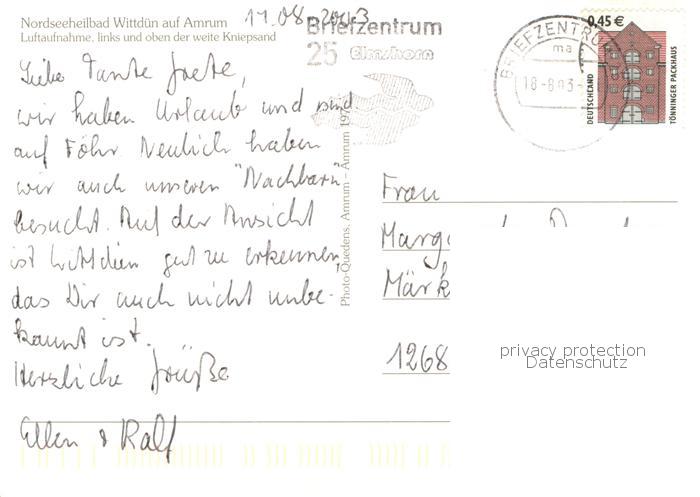 Nordseeheilbad Wittdün auf Amrum
Luftaufnahme, links und oben der weite Kniepsand
11.08.2003
Briefzentrum
25 Elmshorn
BRIEFZENTRU
ma
18-8.03-
0,45 €
DEUTSCHLAND
TÖNNINGER PACKHAUS
Liebe Tante Grete,
wir haben Urlaub und sind
auf Föhr Neulich haben
wir auch unseren "Nachbarn"
besucht. Auf der Ansicht
ist Wittdün gut zu erkennen,
das Dir auch nicht unbe-
kannt ist.
Herzliche Grüße
Ellen & Ralf
Photo-Quedens, Amrum – Amrum
Frau
Marg
Märk
1268
privacy protection
Datenschutz